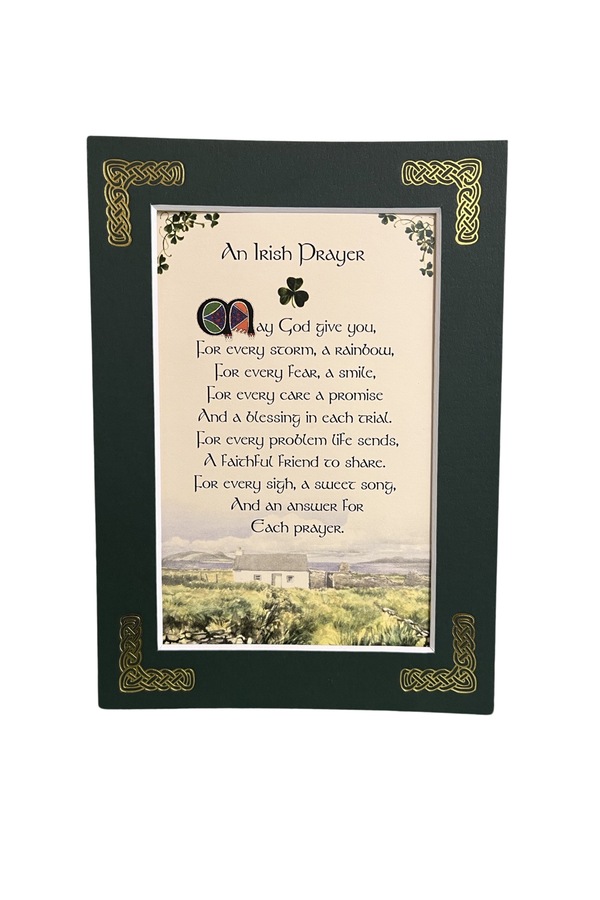 An Irish Prayer
May God give you,
For every storm, a rainbow,
For every fear, a smile,
For every care a promise
And a blessing in each trial.
For every problem life sends,
A faithful friend to share.
For every sigh, a sweet song,
And an answer for
Each prayer.